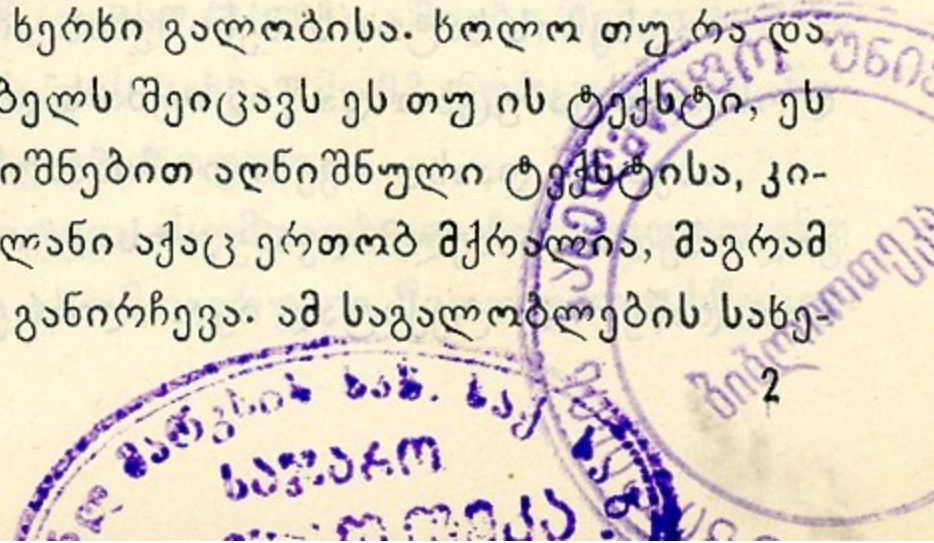 ხერხი გალობისა. ხოლო თუ რა და
ბელს შეიცავს ეს თუ ის ტექსტი, ეს
იშნებით აღნიშნული ტექსტისა, კი-
ლანი აქაც ერთობ მქრალია, მაგრამ
განირჩევა. ამ საგალობლების სახე-
2
უნივ
ბიბლიოთეკა
მარქსის სახ. საქ
საჯარო